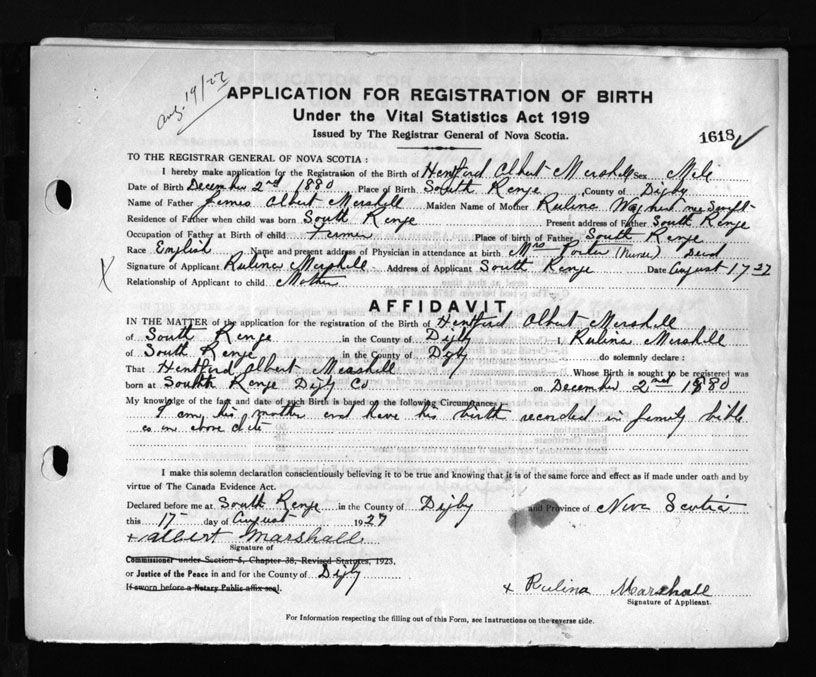 Aug. 19/27
APPLICATION FOR REGISTRATION OF BIRTH
Under the Vital Statistics Act 1919
Issued by The Registrar General of Nova Scotia.
1618
TO THE REGISTRAR GENERAL OF NOVA SCOTIA:
I hereby make application for the Registration of the Birth of Hentford Albert Marshall Sex Male
Date of Birth December 2nd 1880 Place of Birth South Range County of Digby
Name of Father James Albert Marshall Maiden Name of Mother Rulina
Residence of Father when child was born South Range Present address of Father South Range
Occupation of Father at Birth of child Farmer Place of birth of Father South Range
Race English Name and present address of Physician in attendance at birth Mrs Porter (Nurse) Dead
Signature of Applicant Rulina Marshall Address of Applicant South Range Date August 17 27
X Relationship of Applicant to child Mother
AFFIDAVIT
IN THE MATTER of the application for the registration of the Birth of Hentford Albert Marshall
of South Range in the County of Digby I, Rulina Marshall
of South Range in the County of Digby do solemnly declare:
That Hentford Albert Marshall Whose Birth is sought to be registered was
born at South Range Digby Co on December 2nd 1880
My knowledge of the fact and date of such Birth is based on the following Circumstances
I am his mother and have his birth recorded in family bible
as in above date
I make this solemn declaration conscientiously believing it to be true and knowing that it is of the same force and effect as if made under oath and by
virtue of The Canada Evidence Act.
Declared before me at South Range in the County of Digby and Province of Nova Scotia
this 17 day of August 1927
x Albert Marshall
Signature of
Commissioner under Section 5, Chapter 38, Revised Statutes, 1923,
or Justice of the Peace in and for the County of Digby
If sworn before a Notary Public affix seal.
x Rulina Marshall
Signature of Applicant.
For Information respecting the filling out of this Form, see Instructions on the reverse side.